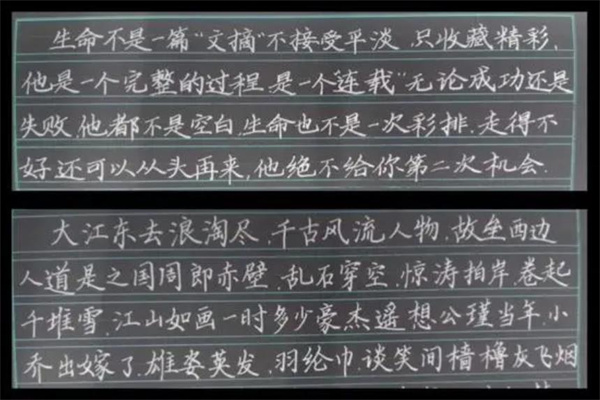 生命不是一篇“文摘“不接受平淡,只收藏精彩,
他是一个完整的过程,是一个连载”无论成功还是
失败,他都不是空白,生命也不是一次彩排.走得不
好还可以从头再来,他绝不给你第二次机会.
大江东去浪淘尽.千古风流人物.故垒西边
人道是之国周郎赤壁.乱石穿空.惊涛拍岸.卷起
千堆雪.江山如画一时多少豪杰遥想公瑾当年.小
乔出嫁了.雄姿英发.羽纶巾.谈笑间樯橹灰飞烟